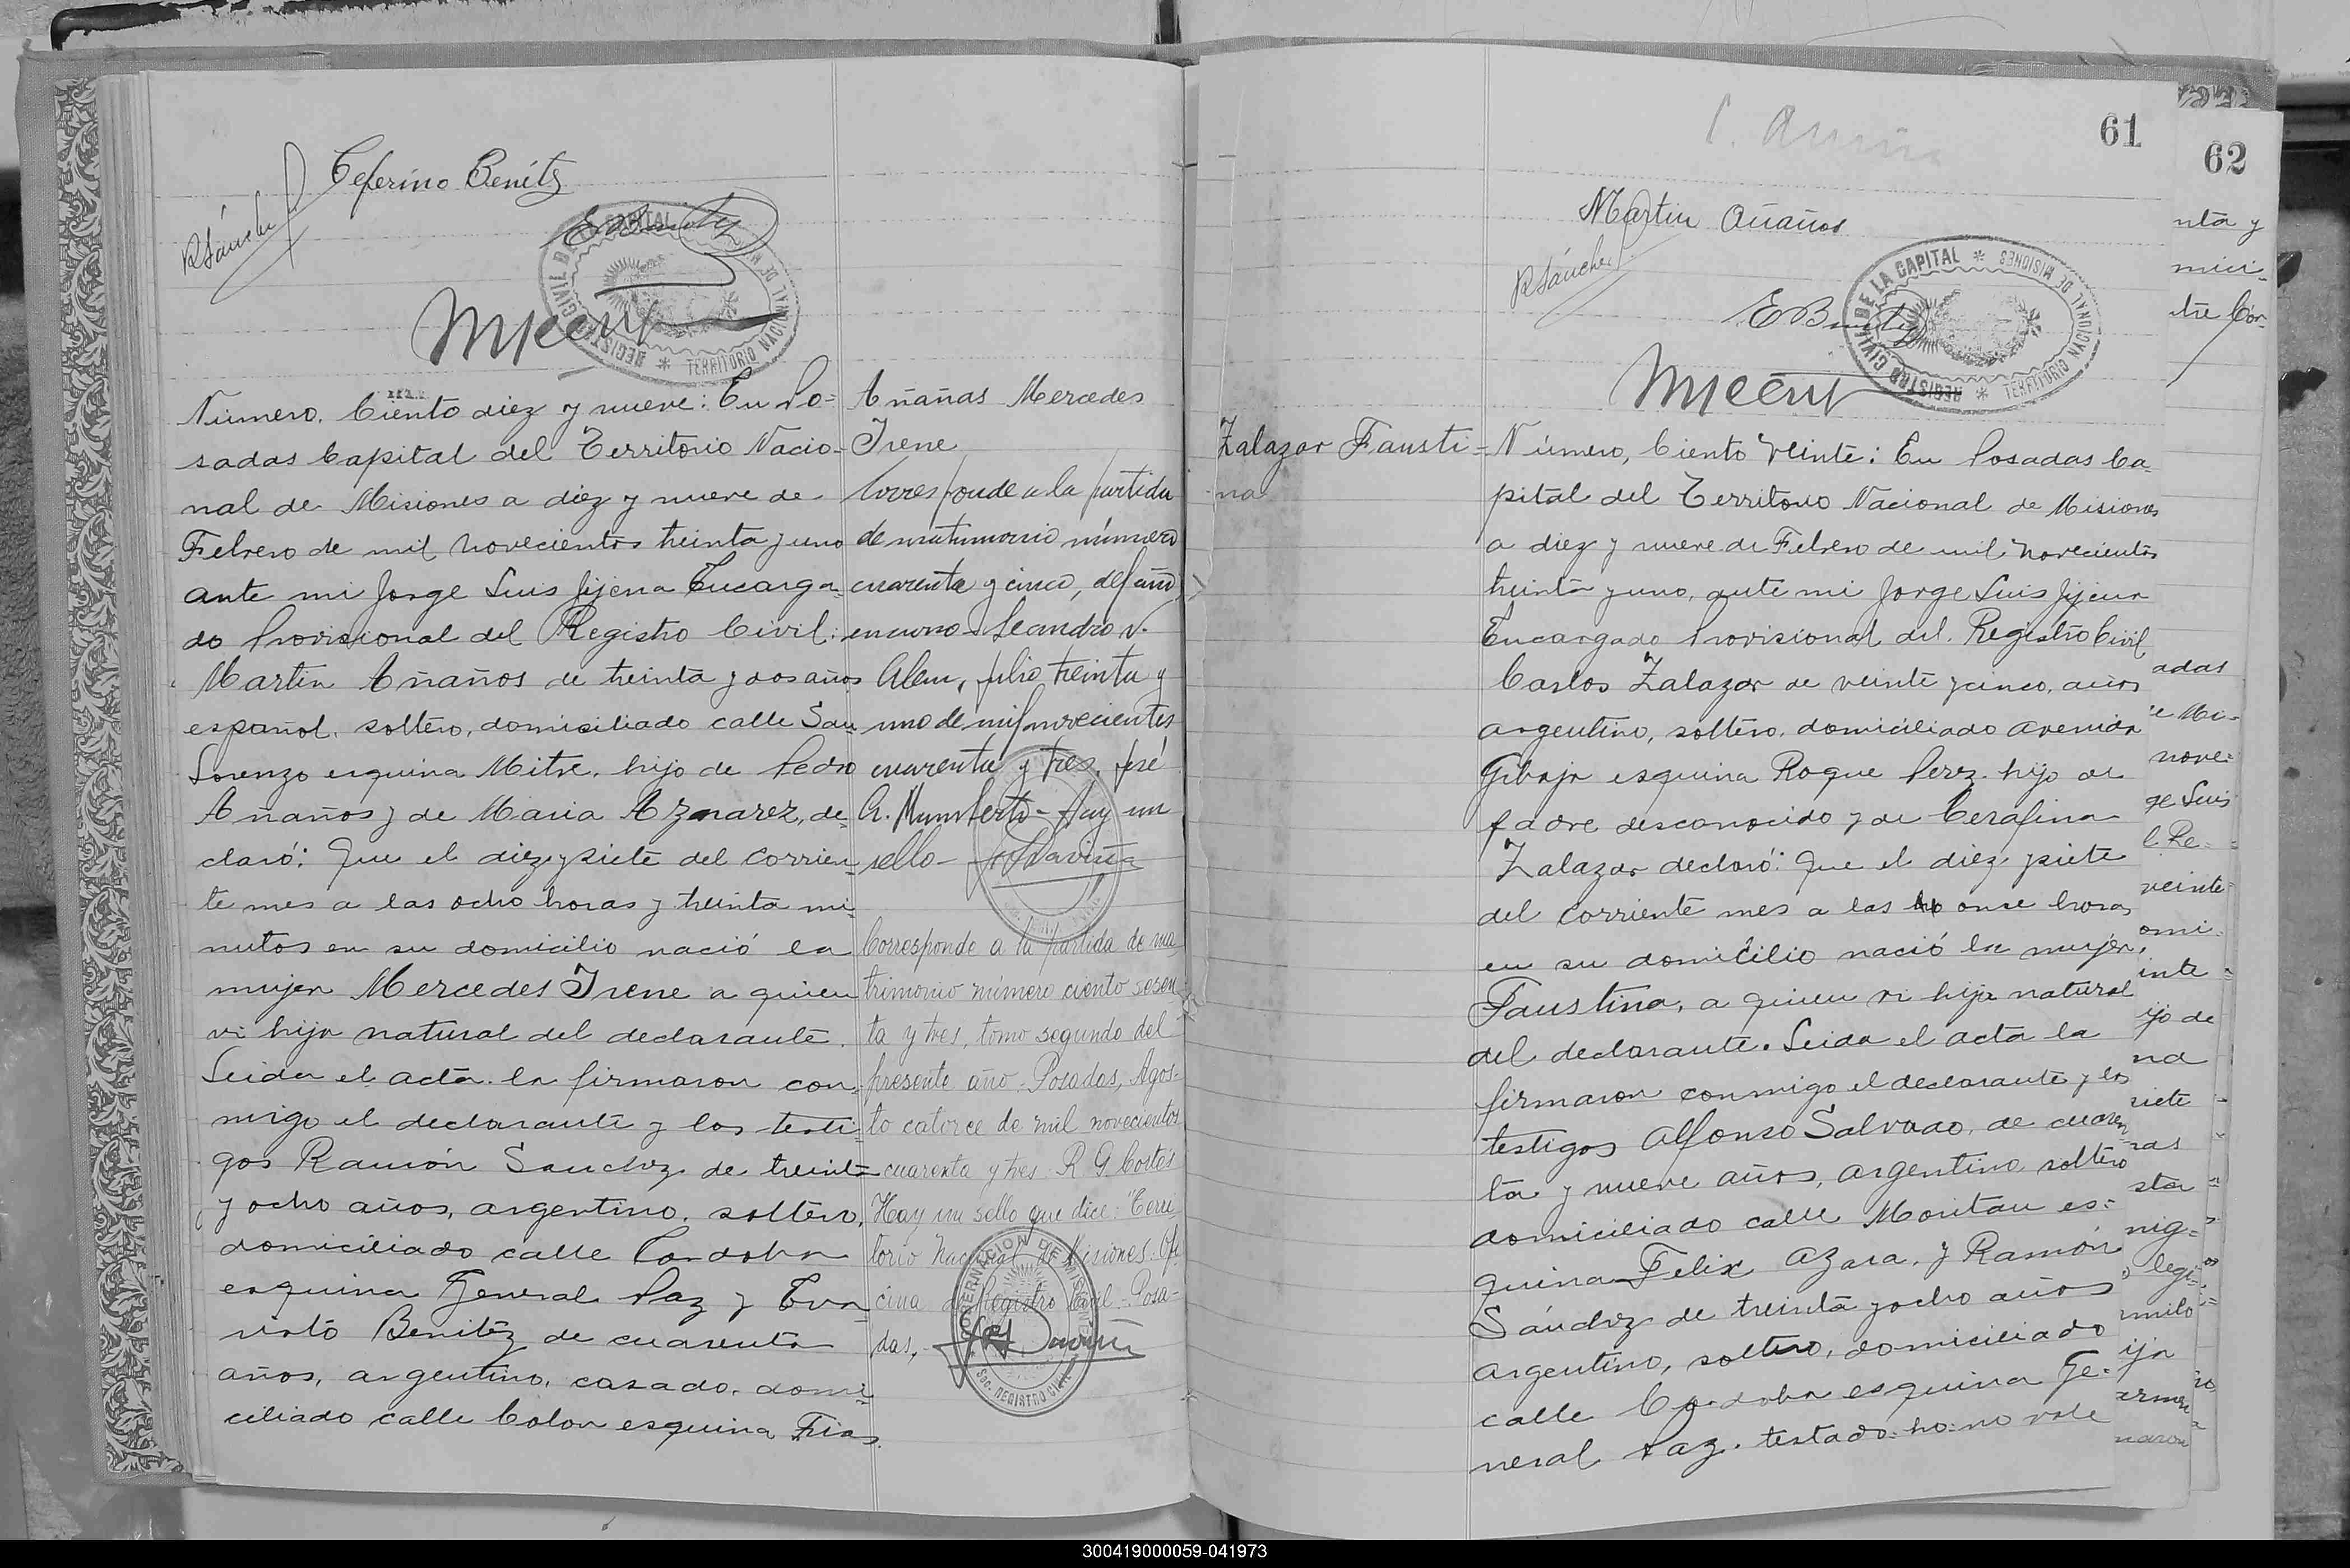 Ceferino Benitz
RSánchez
Número. Ciento diez y nueve: En Po=
sadas Capital del Territorio Nacio-
nal de Misiones a diez y nueve de
Febrero de mil novecientos treinta y uno
ante mi Jorge Luis Jijena Encarga
do Provisional del Registro Civil:
Martin Añaños de treinta y dos años
español, soltero, domiciliado calle San
Lorenzo esquina Mitre, hijo de Pedro
Añaños y de Maria Aznarez, de-
claró: Que el diez y siete del corrien
te mes a las ocho horas y treinta mi
nutos en su domicilio nació la
mujer Mercedes Irene a quien
vi hija natural del declarante.
Leida el acta la firmaron con-
migo el declarante y los testi-
gos Ramón Sanchez de treinta
y ocho años, argentino, soltero,
domiciliado calle Cordoba
esquina General Paz y Eva
risto Benitez de cuarenta
años, argentino, casado, domi-
ciliado calle Colon esquina Frias.
Añañas Mercedes
Irene
Corresponde a la partida
de matrimonio número
cuarenta y cinco, del año
en curso - Leandro N.
Alem, julio treinta y
uno de mil novecientos
cuarenta y tres, José
A. Humberto - Hay un
sello -
Corresponde a la partida de ma
trimonio número ciento sesen
ta y tres, tomo segundo del
presente año - Posadas, Agos-
to catorce de mil novecientos
cuarenta y tres - R G Cortes
Hay un sello que dice: "Terri
torio Nacional de Misiones - Ofi
cina de Registro Civil - Posa-
das,
61
62
Martin Añaños
RSánchez
EBenitez
REGISTRO CIVIL DE LA CAPITAL * TERRITORIO NACIONAL DE MISIONES *
Zalazar Fausti=
na
Número, Ciento Veinte: En Posadas Ca
pital del Territorio Nacional de Misiones
a diez y nueve de Febrero de mil novecientos
treinta y uno, ante mi Jorge Luis Jijena
Encargado Provisional del Registro Civil
Carlos Zalazar de veinte y cinco, años
argentino, soltero, domiciliado avenida
Gibaja esquina Roque Perez hijo de
padre desconocido y de Cerafina
Zalazar declaró: Que el diez y siete
del corriente mes a las ho onse horas
en su domicilio nació la mujer,
Faustina, a quien vi hija natural
del declarante. Leida el acta la
firmaron conmigo el declarante y los
testigos Alfonso Salvado, de cuaren
ta y nueve años, argentino soltero
domiciliado calle Moritan es=
quina Felix Azara, y Ramón
Sánchez de treinta y ocho años
argentino, soltero, domiciliado
calle Cordoba esquina Ge-
neral Paz. testado: ho: no vale
300419000059-041973